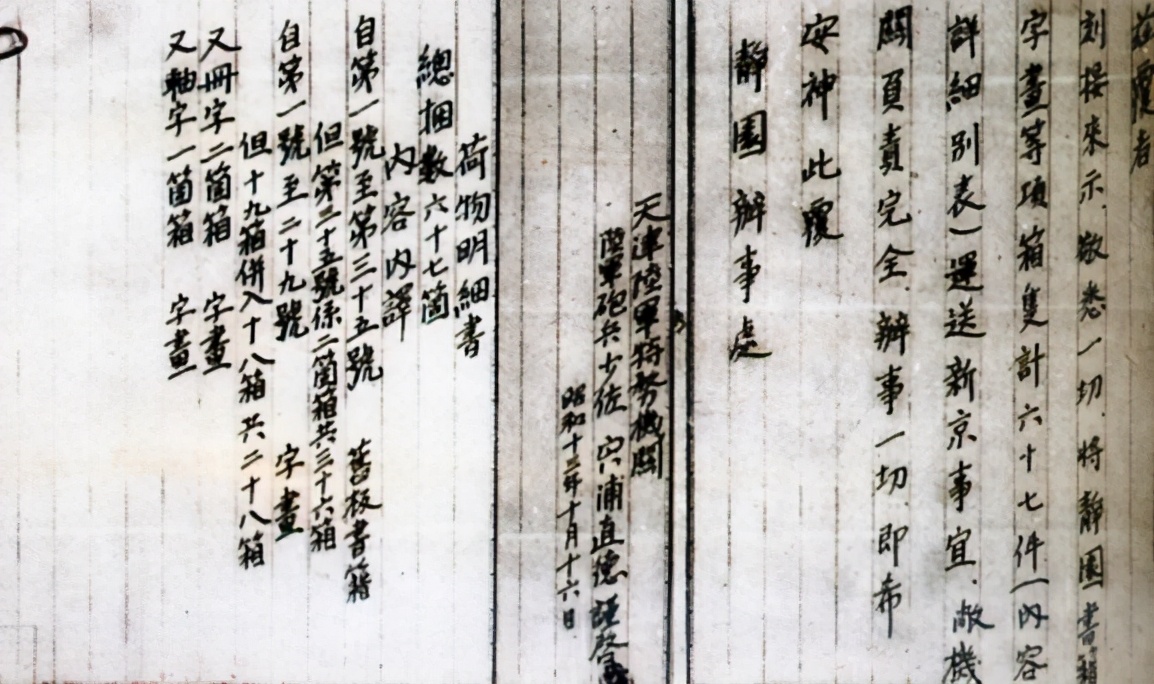 茲覆者
刻接來示敬悉一切將靜園書籍
字畫等項箱隻計六十七件(內容
詳細別表)運送新京事宜敝機
關負責完全辦事一切即希
安神此覆
靜園辦事處
天津陸軍特務機關
陸軍砲兵少佐 宍浦直德謹啓
昭和十三年十月十六日
荷物明細書
總捆數六十七箇
內容內譯
自第一號至第三十五號 舊板書籍
但第三十五號係二箇箱共三十六箱
自第一號至二十九號 字畫
但十九箱併入十八箱共二十八箱
又冊字二箇箱 字畫
又軸字一箇箱 字畫